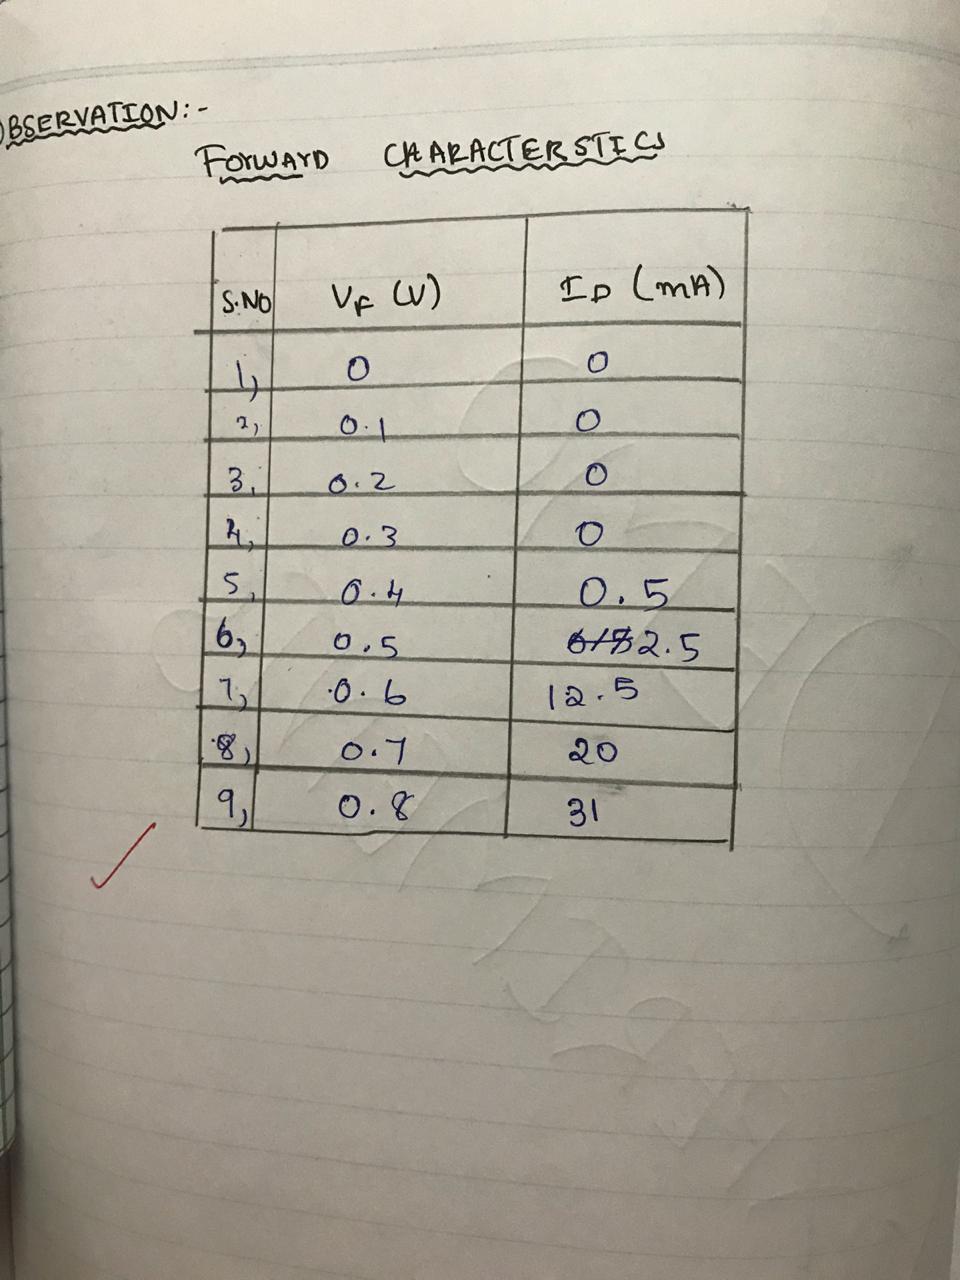 OBSERVATION:-
FORWARD CHARACTERSTICS
S.NO VF (V) ID (mA)
1, 0 0
2, 0.1 0
3, 0.2 0
4, 0.3 0
5, 0.4 0.5
6, 0.5 2.5
7, 0.6 12.5
8, 0.7 20
9, 0.8 31